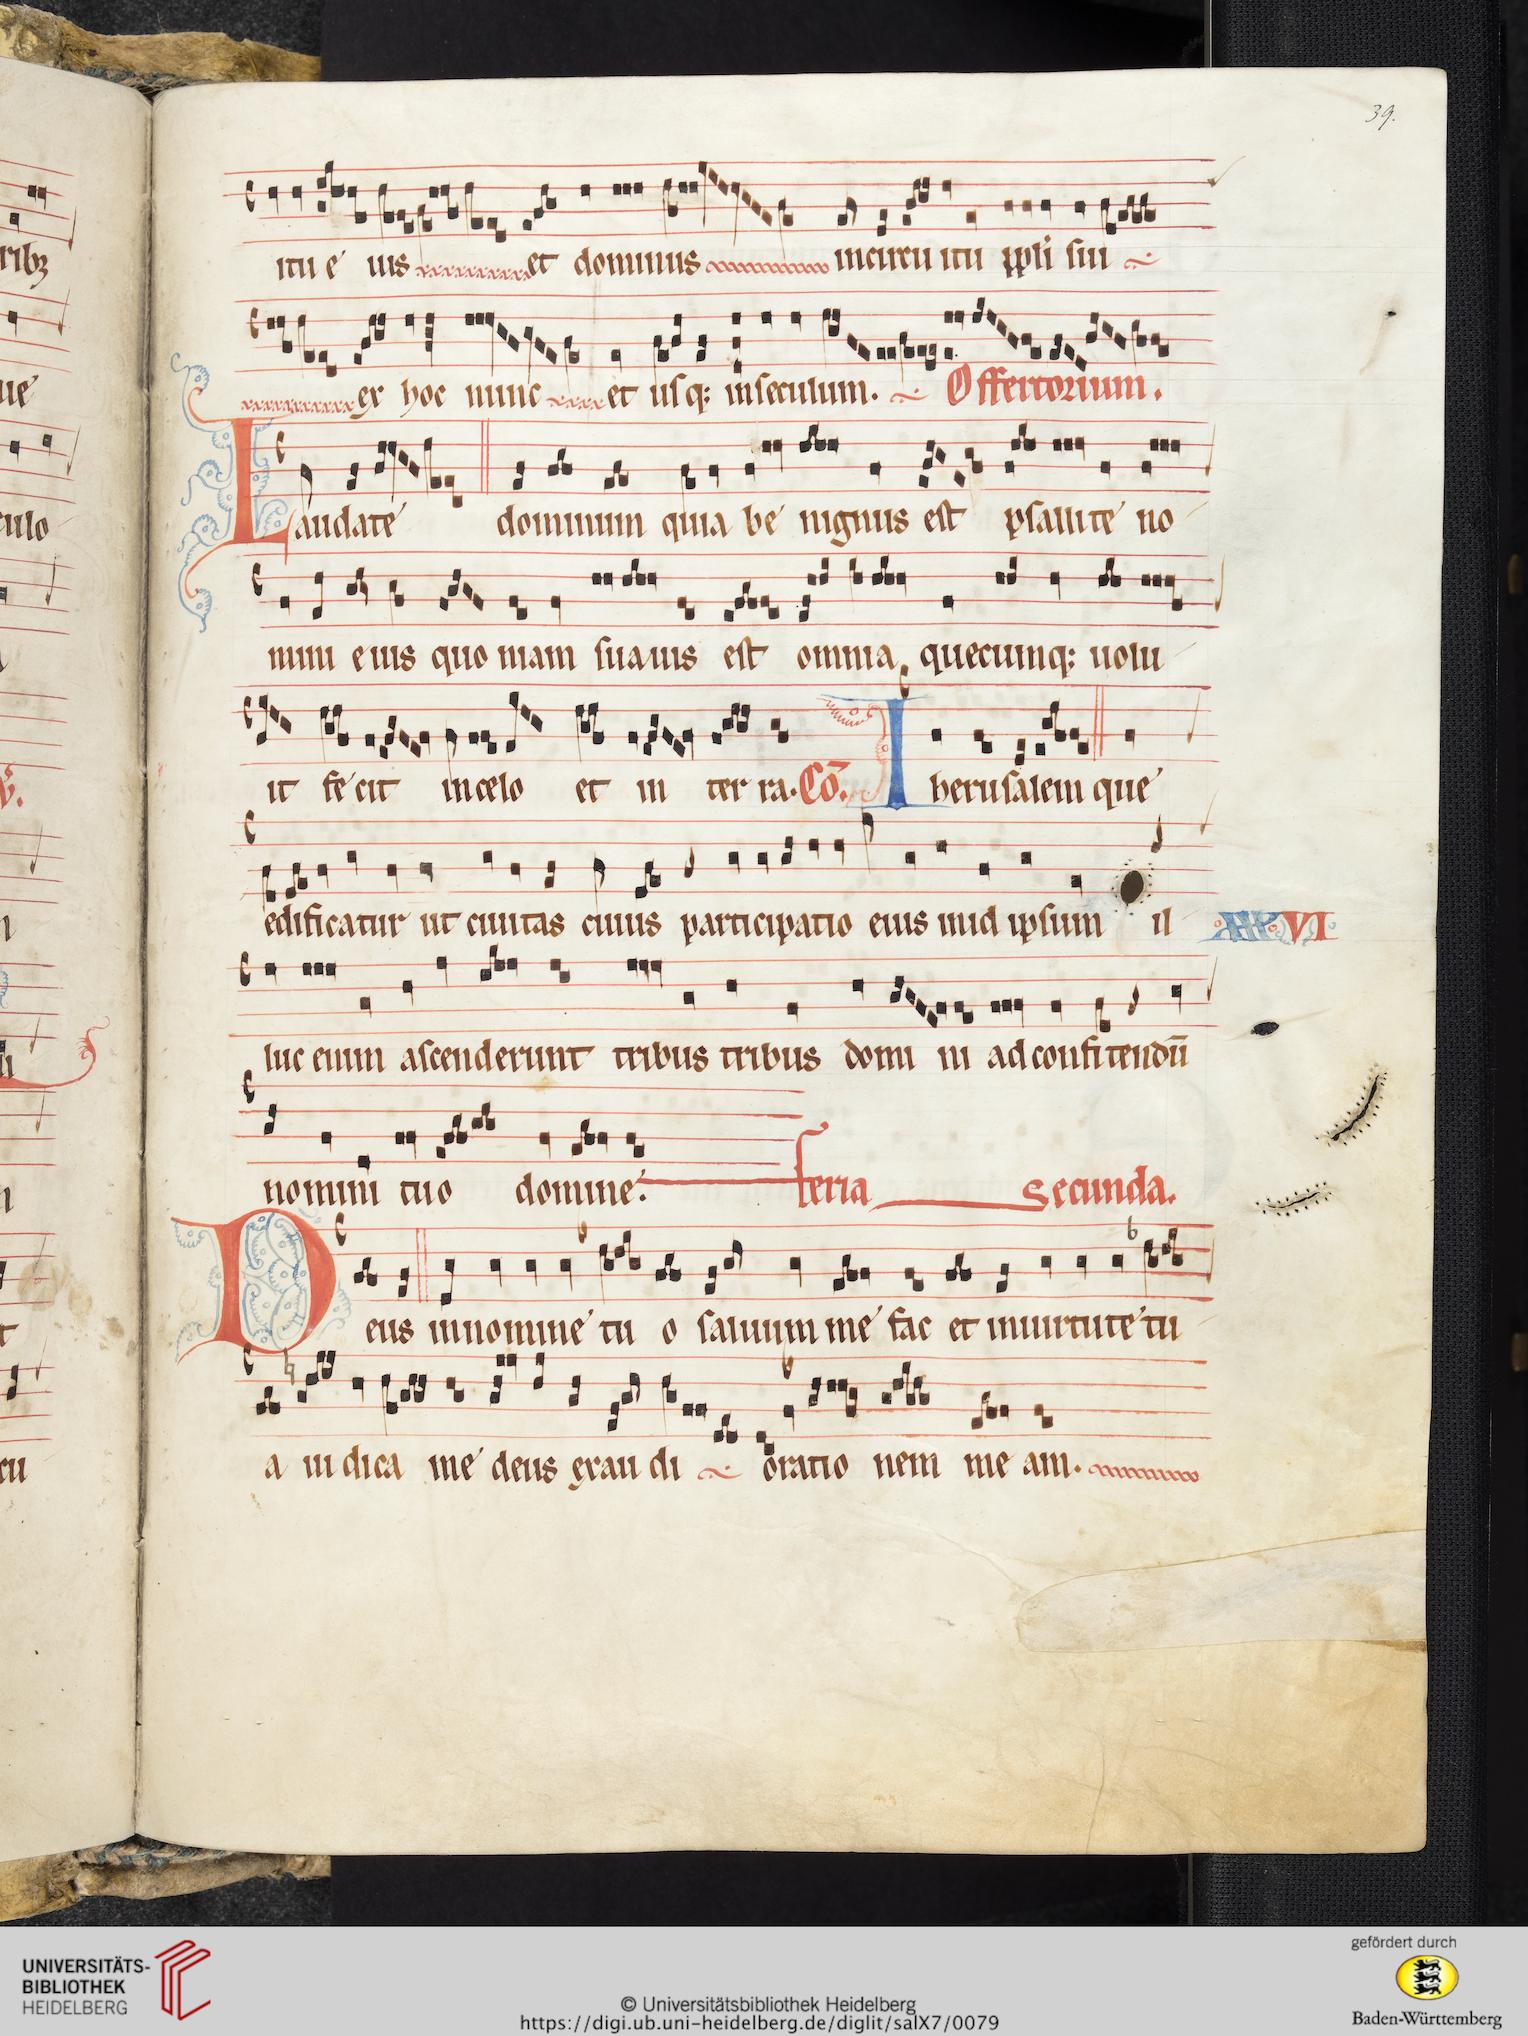 39.
itu e uis et dominus in circu itu ppli sui
ex hoc nunc et usq; in seculum. Offertorium.
Laudate dominum quia be nignus est psallite no
mini eius quo niam suauis est omnia quecumq; uolu
it fecit in celo et in ter ra. Co. Iherusalem que
edificatur ut ciuitas cuius participatio eius inid ipsum il
VI
luc enim ascenderunt tribus tribus domi ni ad confitendū
nomini tuo domine. feria secunda.
Deus in nomine tu o saluum me fac et in uirtute tu
a iu dica me deus exau di oratio nem me am.
ribꝫ
ue
culo
UNIVERSITÄTS-
BIBLIOTHEK
HEIDELBERG
© Universitätsbibliothek Heidelberg
https://digi.ub.uni-heidelberg.de/diglit/salX7/0079
gefördert durch
Baden-Württemberg